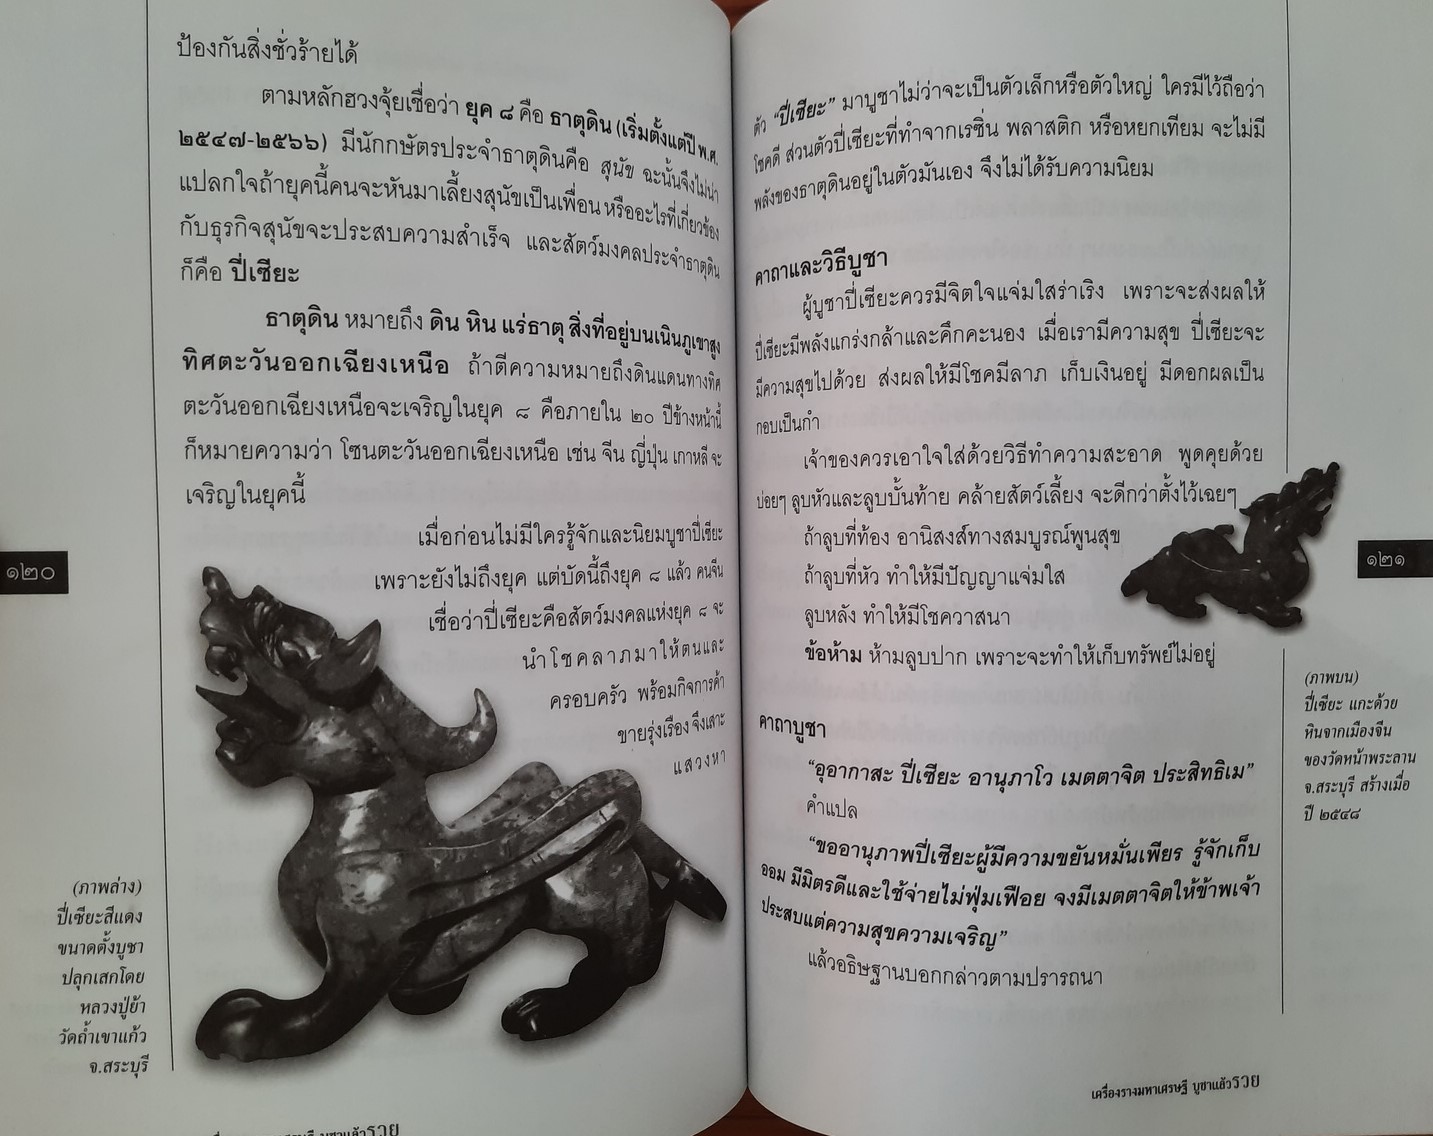 ป้องกันสิ่งชั่วร้ายได้
ตามหลักฮวงจุ้ยเชื่อว่า ยุค ๘ คือ ธาตุดิน (เริ่มตั้งแต่ปี พ.ศ.
๒๕๔๗-๒๕๖๖) มีนักกษัตรประจำธาตุดินคือ สุนัข ฉะนั้นจึงไม่น่า
แปลกใจถ้ายุคนี้คนจะหันมาเลี้ยงสุนัขเป็นเพื่อน หรืออะไรที่เกี่ยวข้อง
กับธุรกิจสุนัขจะประสบความสำเร็จ และสัตว์มงคลประจำธาตุดิน
ก็คือ ปี่เซียะ
ธาตุดิน หมายถึง ดิน หิน แร่ธาตุ สิ่งที่อยู่บนเนินภูเขาสูง
ทิศตะวันออกเฉียงเหนือ ถ้าตีความหมายถึงดินแดนทางทิศ
ตะวันออกเฉียงเหนือจะเจริญในยุค ๘ คือภายใน ๒๐ ปีข้างหน้านี้
ก็หมายความว่า โซนตะวันออกเฉียงเหนือ เช่น จีน ญี่ปุ่น เกาหลี จะ
เจริญในยุคนี้
เมื่อก่อนไม่มีใครรู้จักและนิยมบูชาปี่เซียะ
เพราะยังไม่ถึงยุค แต่บัดนี้ถึงยุค ๘ แล้ว คนจีน
เชื่อว่าปี่เซียะคือสัตว์มงคลแห่งยุค ๘ จะ
นำโชคลาภมาให้ตนและ
ครอบครัว พร้อมกิจการค้า
ขายรุ่งเรือง จึงเสาะ
แสวงหา
๑๒๐
(ภาพล่าง)
ปี่เซียะสีแดง
ขนาดตั้งบูชา
ปลุกเสกโดย
หลวงปู่ย้า
วัดถ้ำเขาแก้ว
จ.สระบุรี
บูชาแล้วรวย
ตัว "ปี่เซียะ" มาบูชาไม่ว่าจะเป็นตัวเล็กหรือตัวใหญ่ ใครมีไว้ถือว่า
โชคดี ส่วนตัวปี่เซียะที่ทำจากเรซิ่น พลาสติก หรือหยกเทียม จะไม่มี
พลังของธาตุดินอยู่ในตัวมันเอง จึงไม่ได้รับความนิยม
คาถาและวิธีบูชา
ผู้บูชาปี่เซียะควรมีจิตใจแจ่มใสร่าเริง เพราะจะส่งผลให้
ปี่เซียะมีพลังแกร่งกล้าและคึกคะนอง เมื่อเรามีความสุข ปี่เซียะจะ
มีความสุขไปด้วย ส่งผลให้มีโชคมีลาภ เก็บเงินอยู่ มีดอกผลเป็น
กอบเป็นกำ
เจ้าของควรเอาใจใส่ด้วยวิธีทำความสะอาด พูดคุยด้วย
บ่อยๆ ลูบหัวและลูบบั้นท้าย คล้ายสัตว์เลี้ยง จะดีกว่าตั้งไว้เฉยๆ
ถ้าลูบที่ท้อง อานิสงส์ทางสมบูรณ์พูนสุข
ถ้าลูบที่หัว ทำให้มีปัญญาแจ่มใส
ลูบหลัง ทำให้มีโชควาสนา
ข้อห้าม ห้ามลูบปาก เพราะจะทำให้เก็บทรัพย์ไม่อยู่
คาถาบูชา
"อุอากาสะ ปี่เซียะ อานุภาโว เมตตาจิต ประสิทธิเม"
คำแปล
"ขออานุภาพปี่เซียะผู้มีความขยันหมั่นเพียร รู้จักเก็บ
ออม มีมิตรดีและใช้จ่ายไม่ฟุ่มเฟือย จงมีเมตตาจิตให้ข้าพเจ้า
ประสบแต่ความสุขความเจริญ"
แล้วอธิษฐานบอกกล่าวตามปรารถนา
๑๒๑
(ภาพบน)
ปี่เซียะ แกะด้วย
หินจากเมืองจีน
ของวัดหน้าพระลาน
จ.สระบุรี สร้างเมื่อ
ปี ๒๕๔๘
เครื่องรางมหาเศรษฐี บูชาแล้วรวย